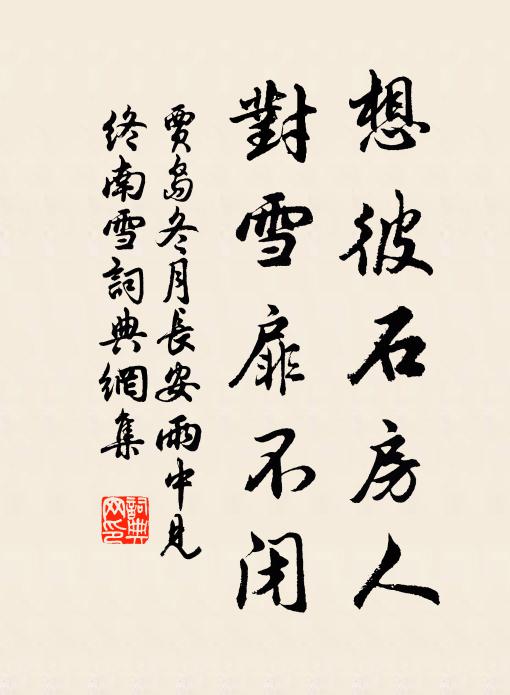 想彼石房人
對雪扉不闭
賈島冬月長安雨中見
終南雪詞典網集
詞典
网印